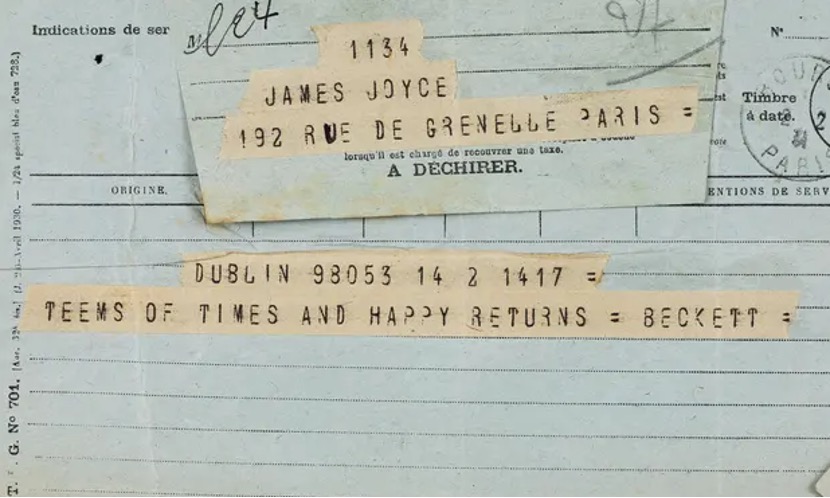 Indications de ser
Nº
1134
JAMES JOYCE
192 RUE DE GRENELLE PARIS =
Timbre
à date.
PARIS
lorsqu'il est chargé de recouvrer une taxe.
A DÉCHIRER.
ORIGINE.
ENTIONS DE SERV
DUBLIN 98053 14 2 1417 =
TEEMS OF TIMES AND HAPPY RETURNS = BECKETT =
T. . G. Nº 701.